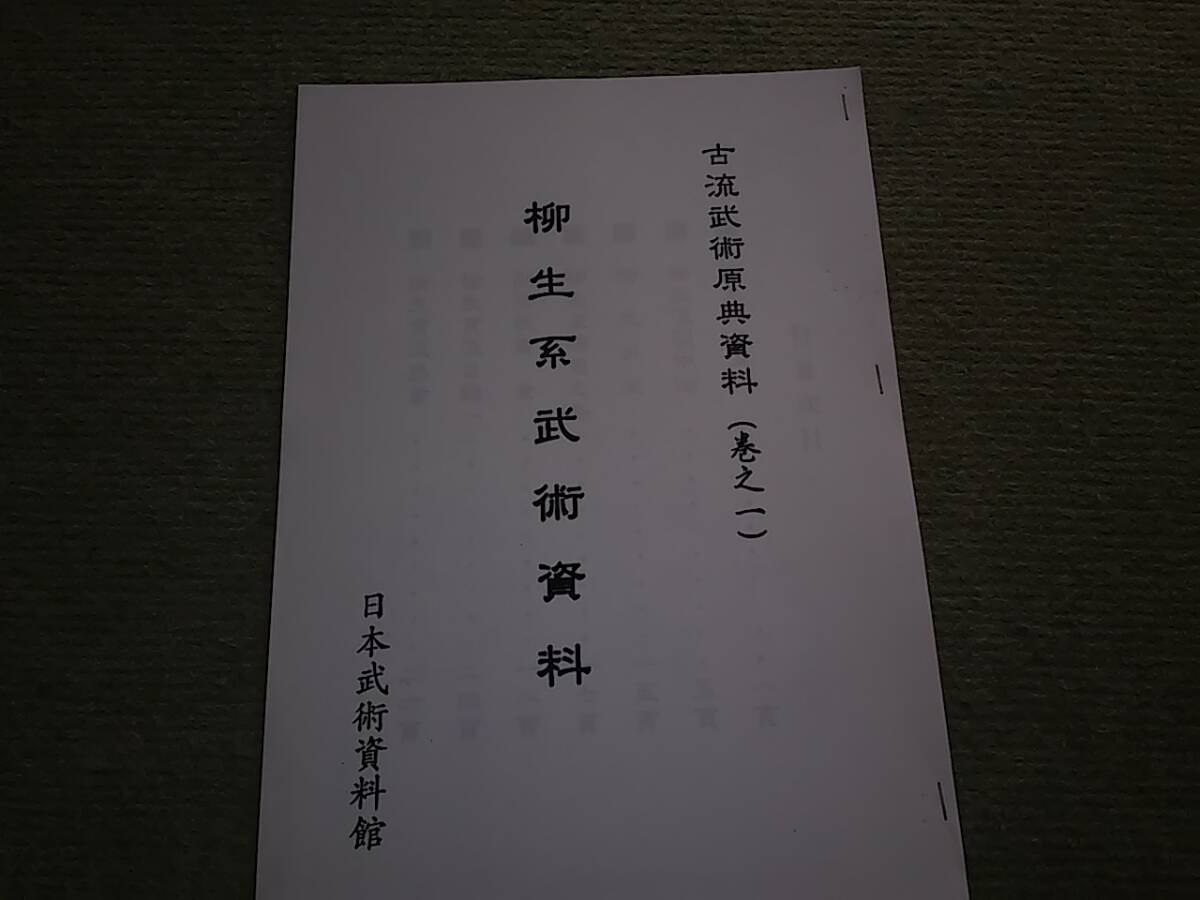 古流武術原典資料(巻之一)
柳生系武術資料
日本武術資料館